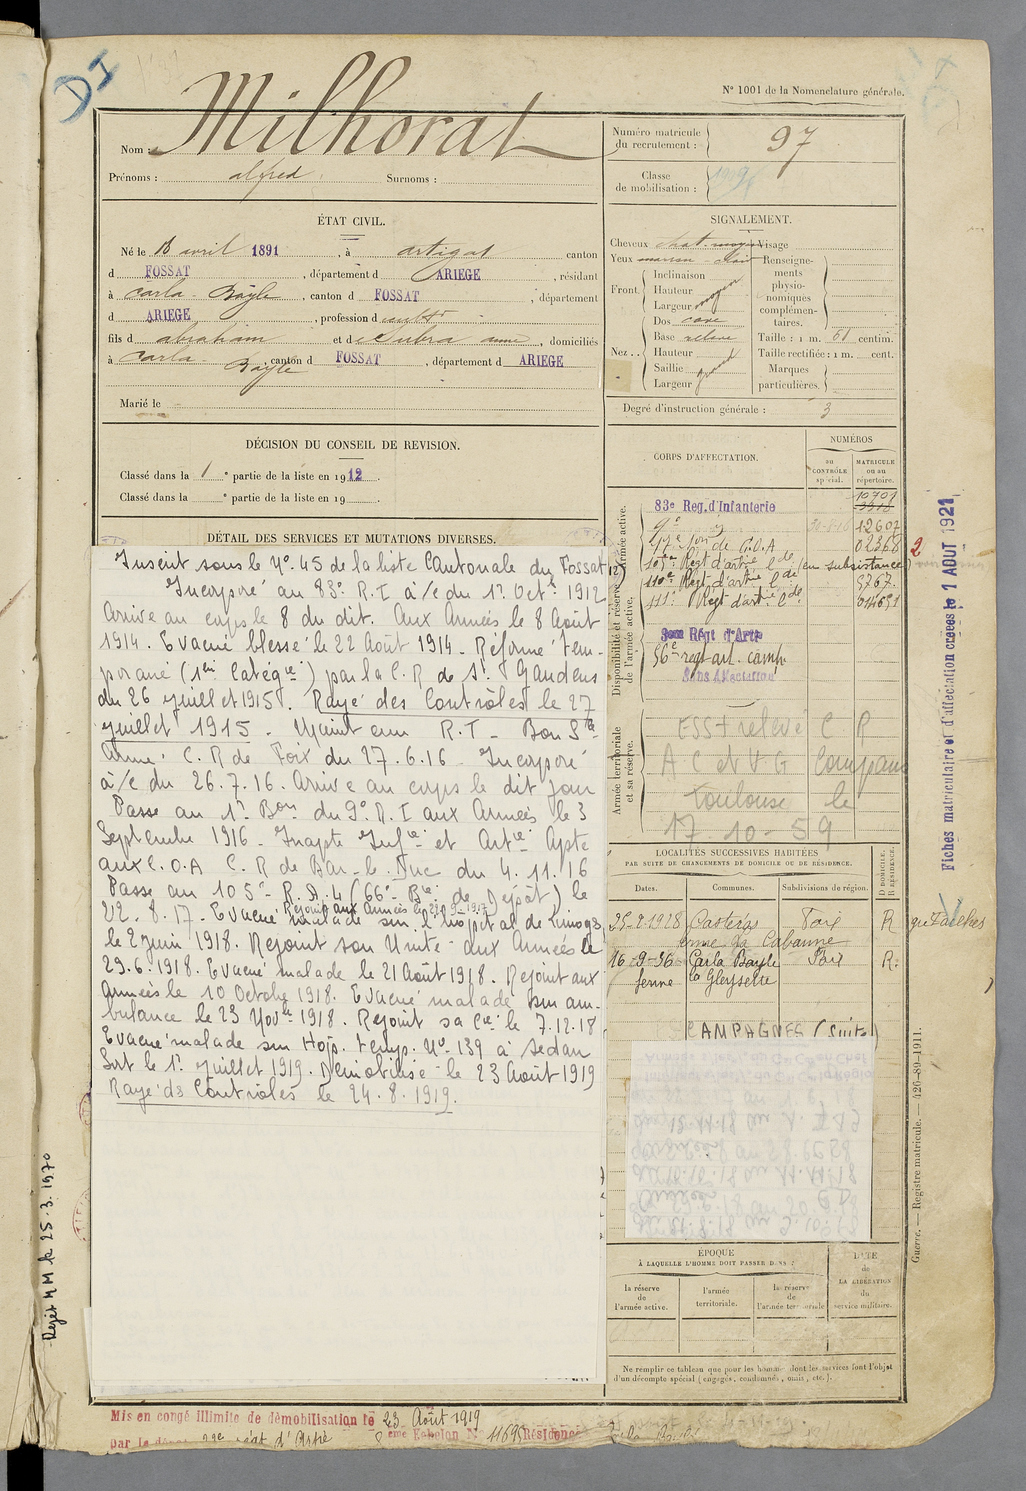 DI
N° 1001 de la Nomenclature générale.
Nom : Milhorat
Prénoms : alfred Surnoms :
Numéro matricule du recrutement : 97
Classe de mobilisation :
ÉTAT CIVIL.
Né le 18 avril 1891, à artigat canton
d FOSSAT, département d ARIEGE, résidant
à Carla-Bayle, canton d FOSSAT, département
d ARIEGE, profession d cultr
fils d abraham et de Subra anne, domiciliés
à Carla-Bayle, canton d FOSSAT, département d ARIEGE
Marié le
DÉCISION DU CONSEIL DE REVISION.
Classé dans la 1e partie de la liste en 1912.
Classé dans la e partie de la liste en 19
DÉTAIL DES SERVICES ET MUTATIONS DIVERSES.
Inscrit sous le N° 45 de la liste Cantonale du Fossat
Incorporé au 83e R.I à/c du 1er Octe 1912
Arrive au corps le 8 du dit. Aux Armées le 8 Août
1914. Evacué blessé le 22 Août 1914. Réformé tem-
poraire (1ère Catégie) par la C.R de St. Gaudens
du 26 juillet 1915. Rayé des Contrôles le 27
juillet 1915. Maintenu R.T - Bon Sce
Armé. C.R de Foix du 17.6.16. Incorporé
à/c du 26.7.16. Arrive au corps le dit jour
Passe au 1er Bon du 9e R.I aux Armées le 3
Septembre 1916. Inapte Infie et Artie Apte
aux C.O.A C.R de Bar-le-Duc du 4.11.16
Passe au 105e R.A.L (66e Bie de Dépôt) le
22.8.17. Rejoint aux Armées le
Evacué malade sur l'hopital de Limoges
le 2 juin 1918. Rejoint son Unité aux Armées le
29.6.1918. Evacué malade le 21 Août 1918. Rejoint aux
Armées le 10 Octobre 1918. Evacué malade sur am-
bulance le 23 Nove 1918. Rejoint sa Cie le 7.12.18
Evacué malade sur Hop. temp. N° 139 à Sedan
Sort le 1er juillet 1919. Démobilisé le 23 Août 1919
Rayé ds Contrôles le 24.8.1919.
SIGNALEMENT.
Cheveux chat. moyen Visage
Yeux marron clair
Front. Inclinaison
Hauteur moyen
Largeur
Nez.. Dos cave
Base relevé
Hauteur
Saillie grand
Largeur
Renseignements physionomiques complémentaires.
Taille : 1 m. 61 centim.
Taille rectifiée : 1 m. cent.
Marques particulières.
Degré d'instruction générale : 3
CORPS D'AFFECTATION.
NUMÉROS
au CONTRÔLE spécial.
MATRICULE ou au répertoire.
Armée active.
Disponibilité et réserve de l'armée active.
83e Reg. d'Infanterie
10701
9e
12607
17e Son de C.O.A
02368
105e Regt d'artie lde (en subsistance)
110e Regt d'artie lde 5767
111e Regt d'artie lde
56e regt art. camp
Sans Affectation
Armée territoriale et sa réserve.
ESS + relevé C R
A C et V G Compans
Toulouse le
17.10-59
LOCALITÉS SUCCESSIVES HABITÉES
PAR SUITE DE CHANGEMENTS DE DOMICILE OU DE RÉSIDENCE.
Dates. Communes. Subdivisions de région. D DOMICILE. R RÉSIDENCE.
25-2-1928 Castéras Foix R
ferme la Cabanne
16-9-36 Carla Bayle Foix R.
ferme la Gleysette
CAMPAGNES (Suite)
ÉPOQUE
À LAQUELLE L'HOMME DOIT PASSER DANS :
la réserve de l'armée active.
l'armée territoriale.
la réserve de l'armée territoriale
DATE de LA LIBÉRATION du service militaire.
Ne remplir ce tableau que pour les hommes dont les services font l'objet
d'un décompte spécial (engagés, condamnés, omis, etc.).
Mis en congé illimité de démobilisation le 23 Août 1919
eme Echelon N° 11695 Résidence
Fiches matriculaire et d'affectation créées le 1 AOUT 1921
Guerre. — Registre matricule. — 426-89-1911.
Rejet MM le 25.3.1970